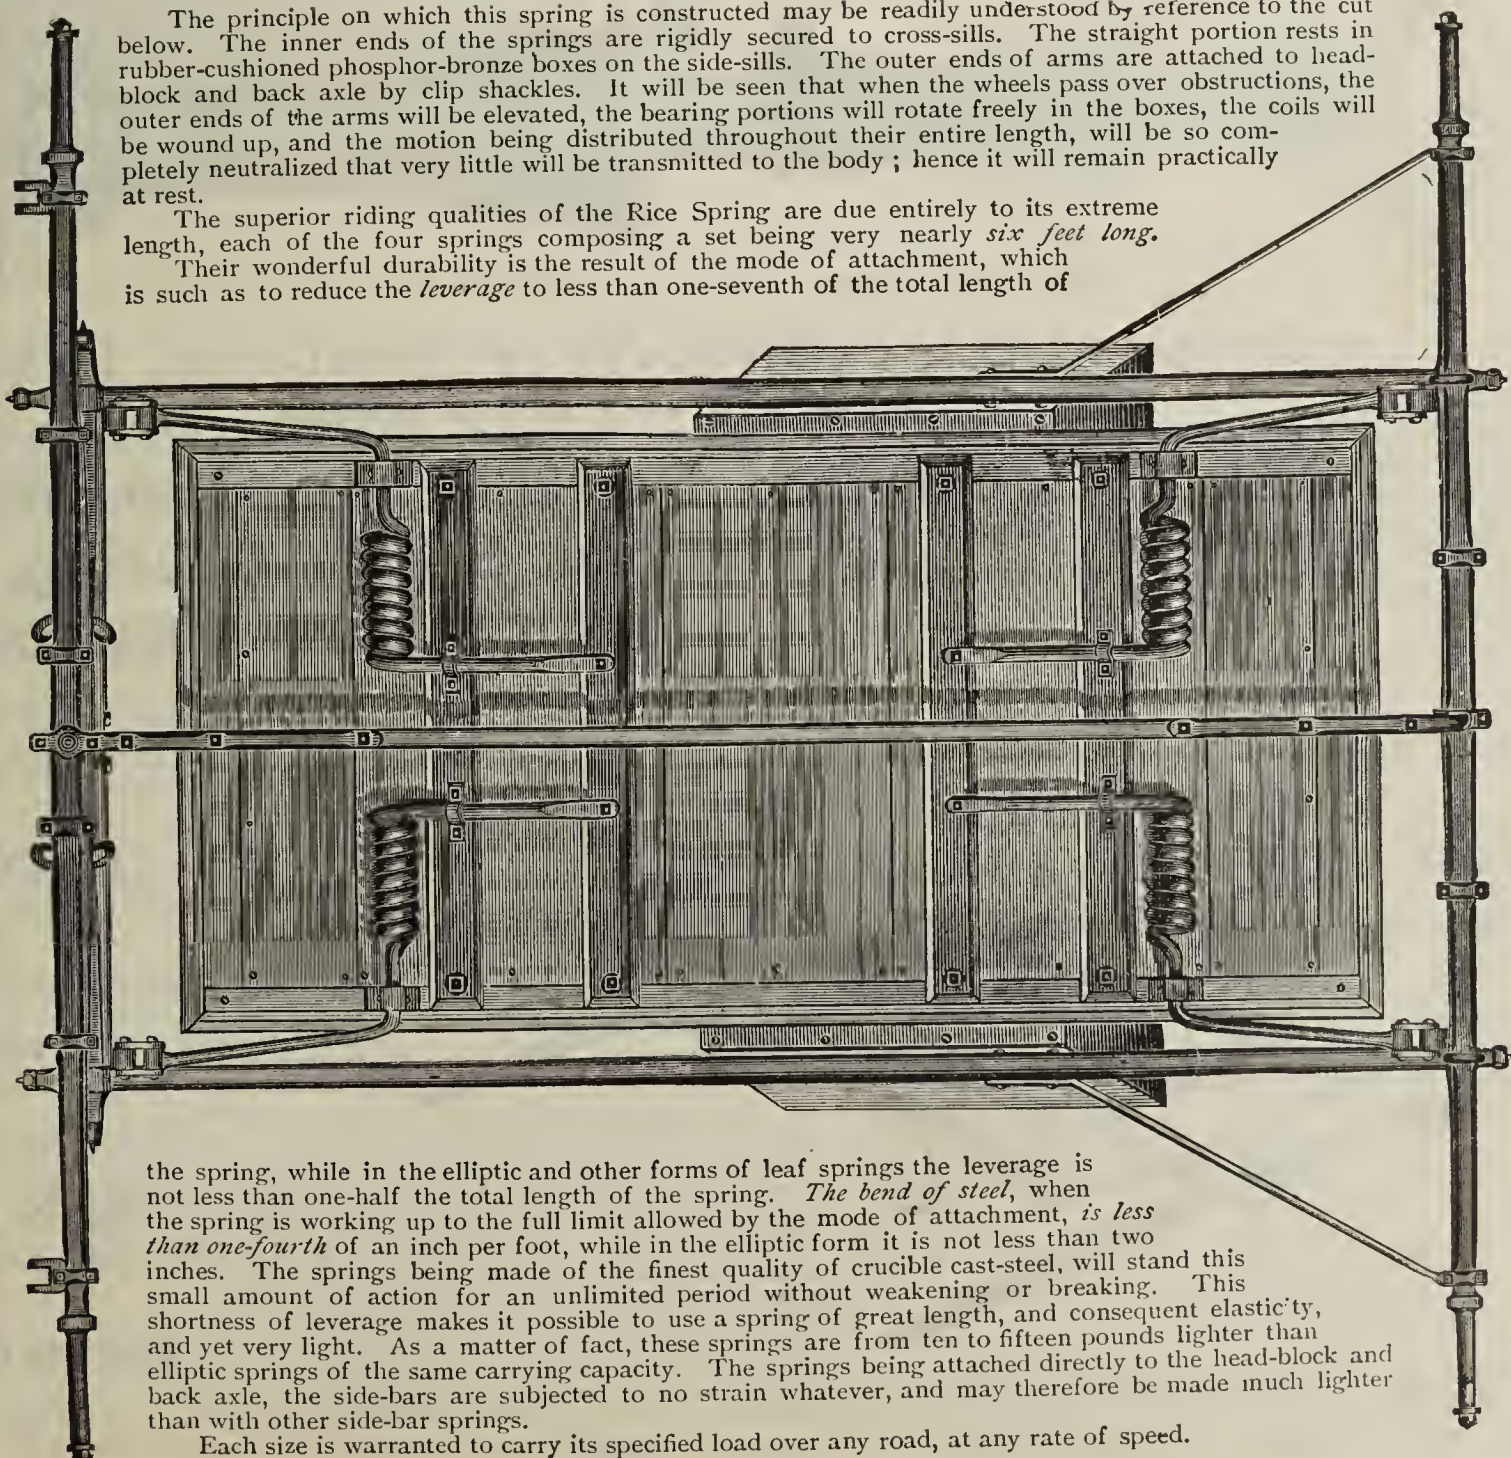 The principle on which this spring is constructed may be readily understood by reference to the cut
below. The inner ends of the springs are rigidly secured to cross-sills. The straight portion rests in
rubber-cushioned phosphor-bronze boxes on the side-sills. The outer ends of arms are attached to head-
block and back axle by clip shackles. It will be seen that when the wheels pass over obstructions, the
outer ends of the arms will be elevated, the bearing portions will rotate freely in the boxes, the coils will
be wound up, and the motion being distributed throughout their entire length, will be so com-
pletely neutralized that very little will be transmitted to the body ; hence it will remain practically
at rest.
The superior riding qualities of the Rice Spring are due entirely to its extreme
length, each of the four springs composing a set being very nearly six feet long.
Their wonderful durability is the result of the mode of attachment, which
is such as to reduce the leverage to less than one-seventh of the total length of
the spring, while in the elliptic and other forms of leaf springs the leverage is
not less than one-half the total length of the spring. The bend of steel, when
the spring is working up to the full limit allowed by the mode of attachment, is less
than one-fourth of an inch per foot, while in the elliptic form it is not less than two
inches. The springs being made of the finest quality of crucible cast-steel, will stand this
small amount of action for an unlimited period without weakening or breaking. This
shortness of leverage makes it possible to use a spring of great length, and consequent elasticity,
and yet very light. As a matter of fact, these springs are from ten to fifteen pounds lighter than
elliptic springs of the same carrying capacity. The springs being attached directly to the head-block and
back axle, the side-bars are subjected to no strain whatever, and may therefore be made much lighter
than with other side-bar springs.
Each size is warranted to carry its specified load over any road, at any rate of speed.